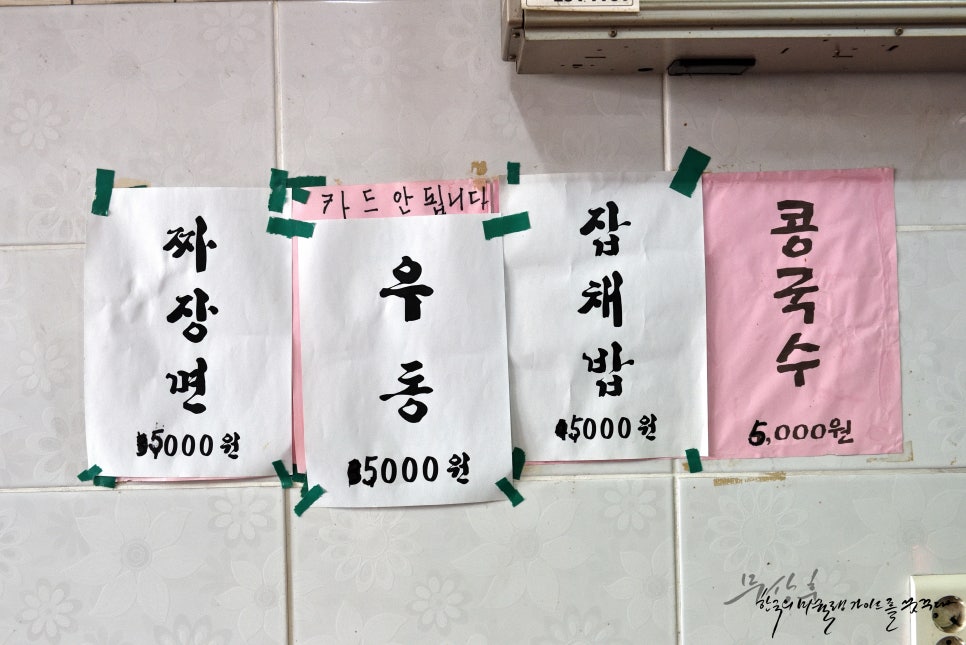 카드 안 됩니다
짜장면
5000원
우동
5000원
잡채밥
5000원
콩국수
5,000원
한국의 미슐랭 가이드를 꿈꾸다